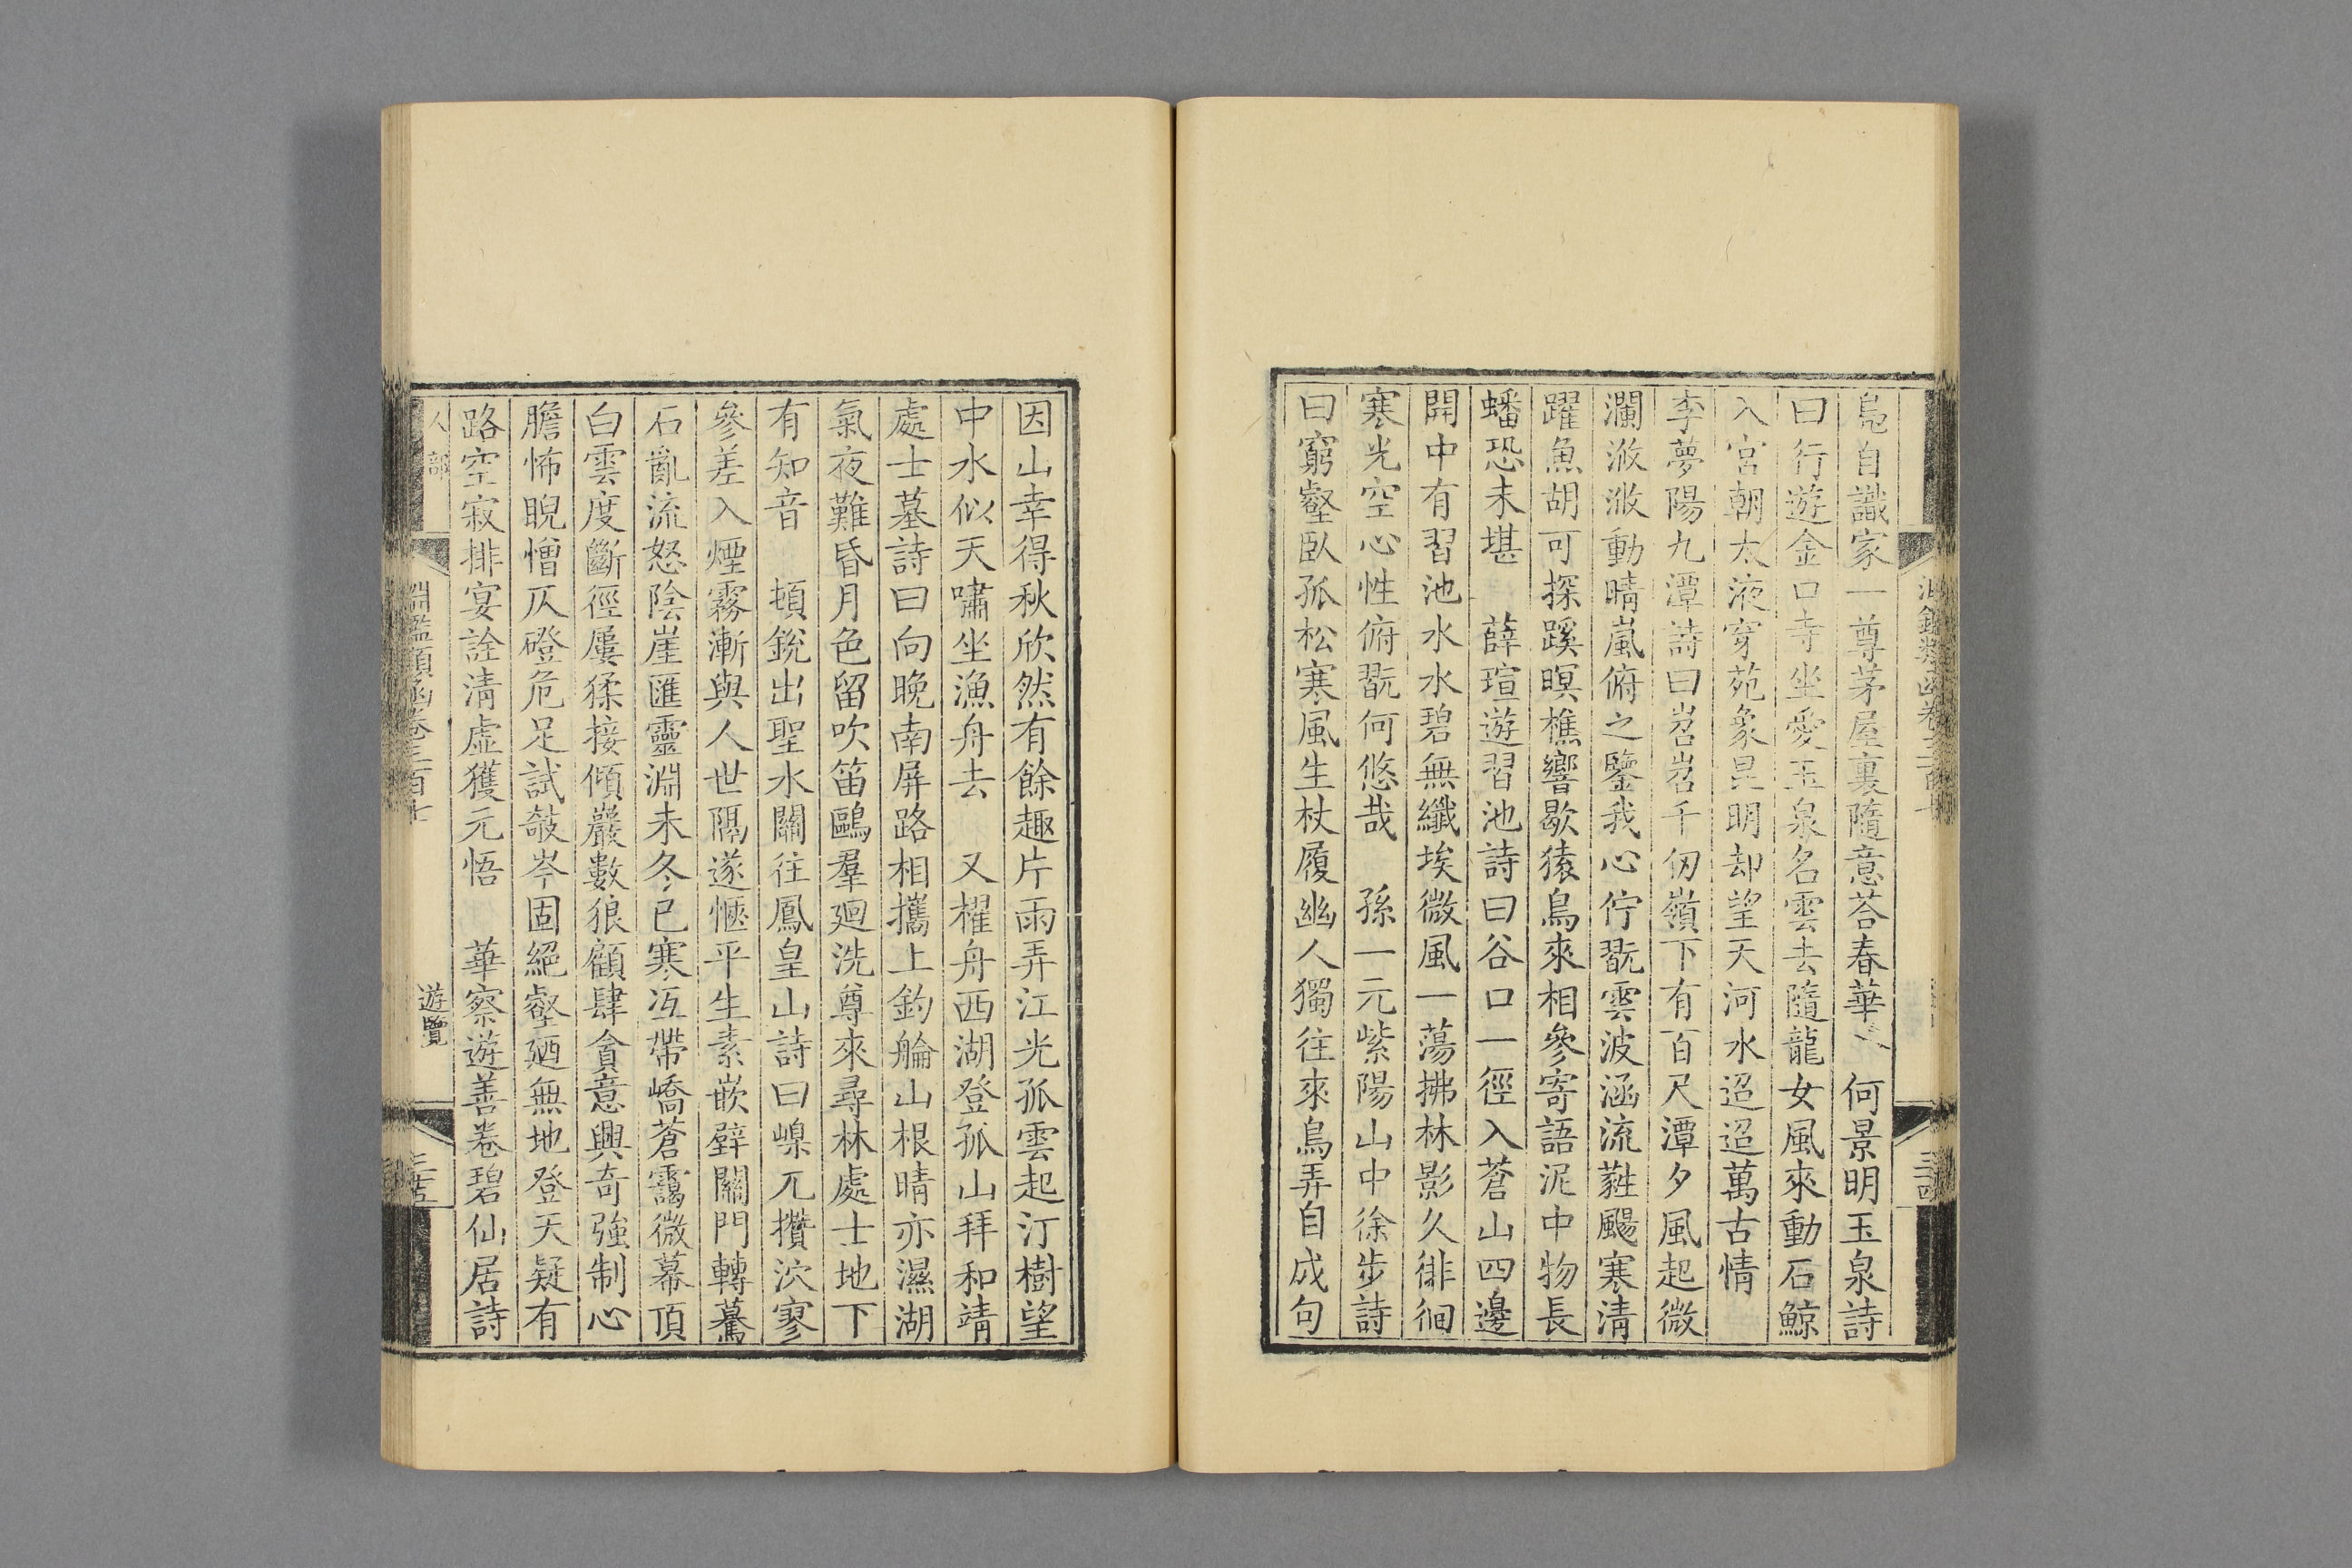 鳧自識家一尊茅屋裏隨意荅春華　何景明玉泉詩
曰行遊金口寺坐愛玉泉名雲去隨龍女風來動石鯨
入宮朝太液穿苑象昆明却望天河水迢迢萬古情
李夢陽九潭詩曰岧岧千仞嶺下有百尺潭夕風起微
瀾潎潎動晴嵐俯之鑒我心佇翫雲波涵流蕤颺寒清
躍魚胡可探蹊暝樵響歇猿鳥來相參寄語泥中物長
蟠恐未堪　薛瑄遊習池詩曰谷口一徑入蒼山四邊
開中有習池水水碧無纖埃微風一蕩拂林影久徘徊
寒光空心性俯翫何悠哉　孫一元紫陽山中徐步詩
曰窮壑臥孤松寒風生杖履幽人獨往來鳥弄自成句
因山幸得秋欣然有餘趣片雨弄江光孤雲起汀樹望
中水似天嘯坐漁舟去　又櫂舟西湖登孤山拜和靖
處士墓詩曰向晚南屏路相攜上釣艑山根晴亦濕湖
氣夜難昏月色留吹笛鷗羣廻洗尊來尋林處士地下
有知音　頓銳出聖水關往鳳皇山詩曰嵲兀攢泬寥
參差入煙霧漸與人世隔遂愜平生素嵌壁關門轉驀
石亂流怒陰崖匯靈淵未冬已寒冱帶嶠蒼靄微幕頂
白雲度斷徑屢猱接傾巖數狼顧肆貪意興奇強制心
膽怖睨憎仄磴危足試敧岑固絕壑廼無地登天疑有
路空寂排宴詮清虛獲元悟　華察遊善卷碧仙居詩
人部
淵鑑類函卷三百七
遊覽
三十五